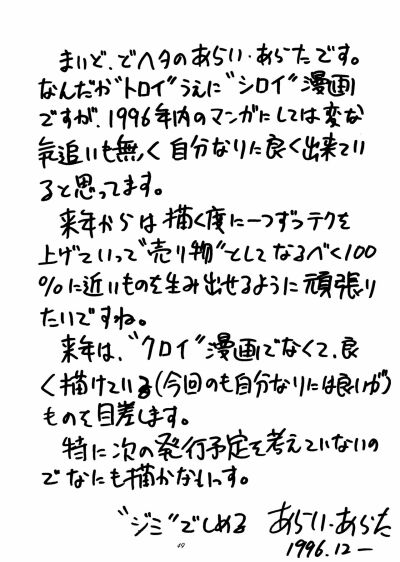 まいど、でヘタのあらい・あらたです。
なんだか“トロイ”うえに“シロイ”漫画
ですが、1996年内のマンガにしては変な
気追いも無く自分なりに良く出来てい
ると思ってます。
来年からは描く度に一つずつテクを
上げていって“売り物”としてなるべく100
%に近いものを生み出せるように頑張り
たいですね。
来年は、“クロイ”漫画でなくて、良
く描けている(今回のも自分なりには良いが)
ものを目差します。
特に次の発行予定を考えていないの
でなにも描かないっす。
“ジミ”でしめる あらい・あらた
1996.12ー